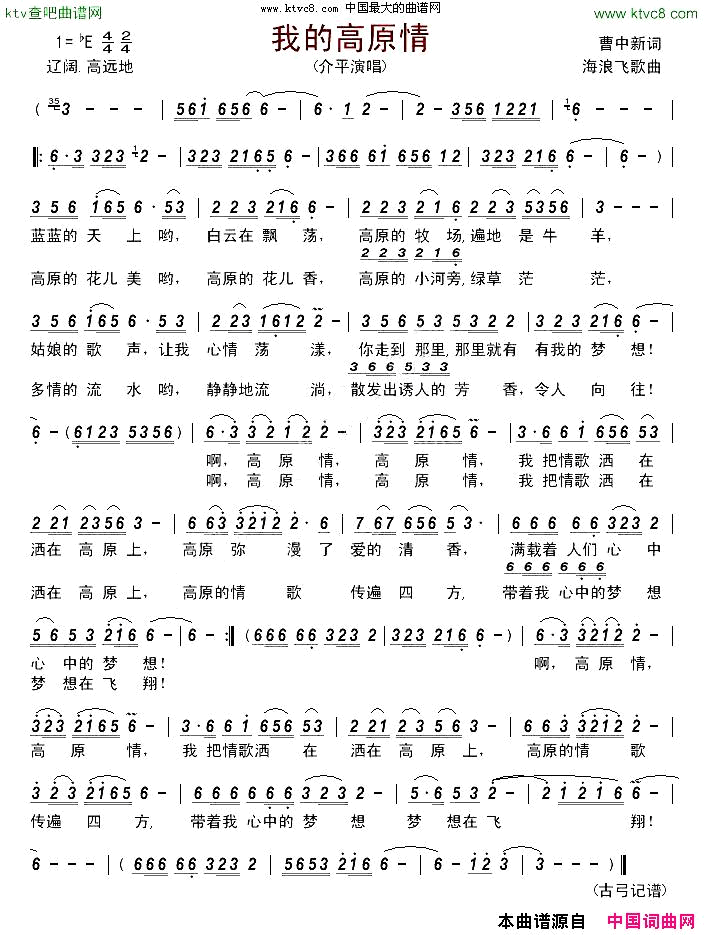 www.ktvc8.com 中国最大的曲谱网
ktv查吧曲谱网
www.ktvc8.com
我的高原情
1=♭E 4/4 2/4
曹中新词
辽阔.高远地
(介平演唱)
海浪飞歌曲
( 3 - - - | 5 6 1 6 5 6 6 - | 6 - 1 2 - | 2 - 3 5 6 1 2 2 1 | 6 - - - |
‖: 6 · 3 3 2 3 2 - | 3 2 3 2 1 6 5 6 - | 3 6 6 6 1 6 5 6 1 2 | 3 2 3 2 1 6 6 - | 6 - )
3 5 6 1 6 5 6 · 5 3 | 2 2 3 2 1 6 6 - | 2 2 3 2 1 6 2 2 3 5 3 5 6 | 3 - - - |
蓝蓝的 天 上 哟, 白云在 飘 荡, 高原的 牧 场,遍地 是 牛 羊,
2 2 3 2 1 6
高原的 花儿 美 哟, 高原的 花儿 香, 高原的 小河旁,绿草 茫 茫,
3 5 6 1 6 5 6 · 5 3 | 2 2 3 1 6 1 2 2 - | 3 5 6 5 3 5 3 2 2 | 3 2 3 2 1 6 6 - |
姑娘的 歌 声,让我 心情 荡 漾, 你走到 那里,那里就有 有我的 梦 想!
3 6 6 6 5 3 3
多情的 流 水 哟, 静静地流 淌, 散发出诱人的 芳 香,令人 向 往!
6 - ( 6 1 2 3 5 3 5 6 ) | 6 · 3 3 2 1 2 2 - | 3 2 3 2 1 6 5 6 - | 3 · 6 6 1 6 5 6 5 3 |
啊, 高 原 情, 高 原 情, 我 把情歌 洒 在
啊, 高 原 情, 高 原 情, 我 把情歌 洒 在
2 2 1 2 3 5 6 3 - | 6 6 3 3 2 1 2 2 · 6 | 7 6 7 6 5 6 5 3 · | 6 6 6 6 6 3 2 3 2 |
洒在 高 原 上, 高原 弥 漫 了 爱 的 清 香, 满载着 人们 心 中
6 6 6 6 6 6 6
洒在 高 原 上, 高原的 情 歌 传遍 四 方, 带着我 心中的 梦 想
5 6 5 3 2 1 6 6 - | 6 - :‖ ( 6 6 6 6 6 3 2 3 2 | 3 2 3 2 1 6 6 - ) | 6 · 3 3 2 1 2 2 - |
心 中的 梦 想! 啊, 高 原 情,
梦 想在 飞 翔!
3 2 3 2 1 6 5 6 - | 3 · 6 6 1 6 5 6 5 3 | 2 2 1 2 3 5 6 3 - | 6 6 3 3 2 1 2 2 - |
高 原 情, 我 把情歌洒 在 洒在 高 原 上, 高原的 情 歌
3 2 3 2 1 6 5 6 - | 6 6 6 6 6 6 3 2 3 2 - | 5 · 6 5 3 2 - | 2 1 2 1 6 6 - |
传遍 四 方, 带着我 心中的 梦 想 梦 想在 飞 翔!
6 - - - | ( 6 6 6 6 6 3 2 3 2 | 5 6 5 3 2 1 6 6 - | 6 - 1 2 3 | 3 - - - ) ‖
(古弓记谱)
本曲谱源自 中国词曲网